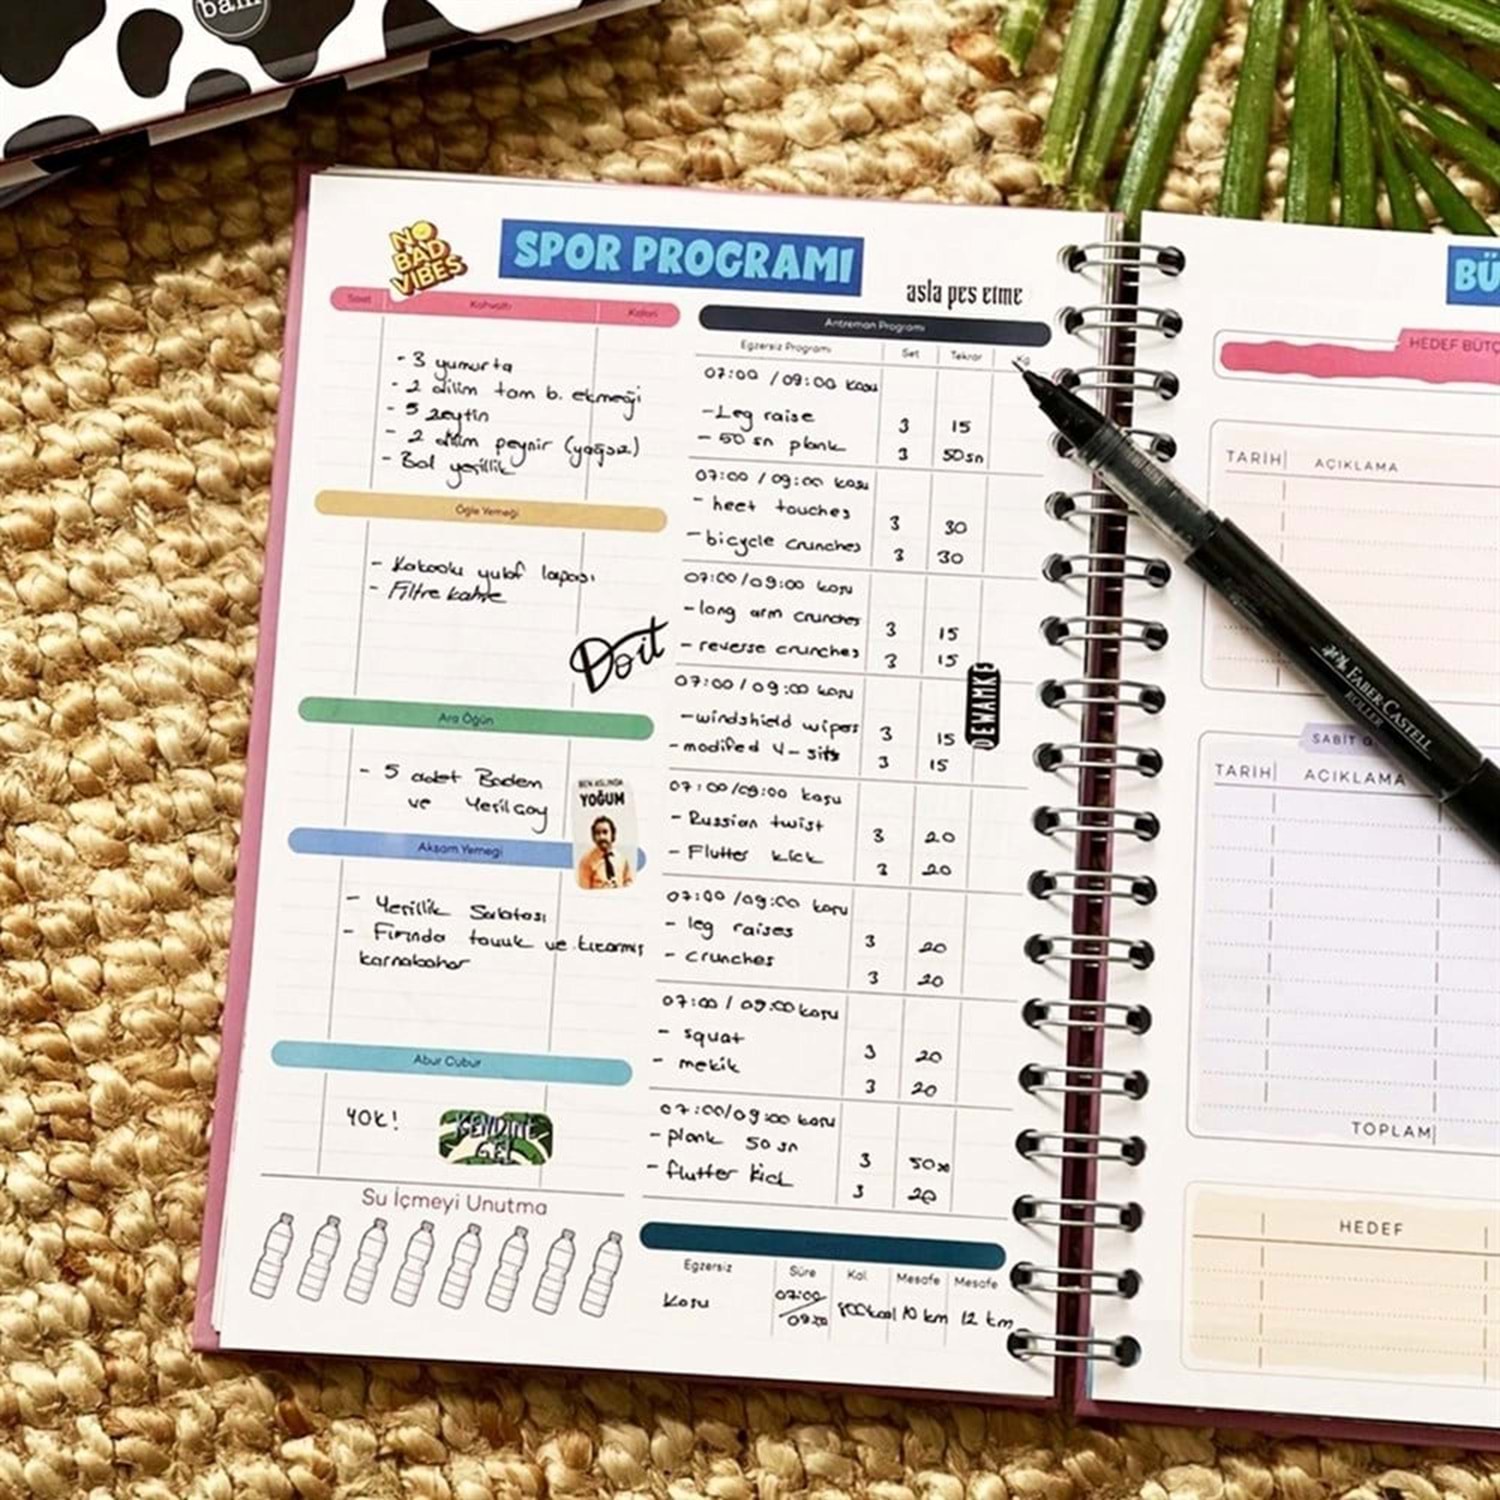 bam
NO
BAD
VIBES
SPOR PROGRAMI
asla pes etme
Saat Kahvaltı Kalori
- 3 yumurta
- 2 dilim tam b. ekmeği
- 5 zeytin
- 2 dilim peynir (yağsız)
- Bol yeşillik
Öğle Yemeği
- Kakaolu yulaf lapası
- Filtre kahve
Do it
Ara Öğün
- 5 adet Badem
ve Yeşilçay
BEN ASLINDA
YOĞUM
Akşam Yemeği
- Yeşillik Salatası
- Fırında tavuk ve kızarmış
karnabahar
Abur Cubur
YOK!
KENDİNE
GEL
Su İçmeyi Unutma
Antreman Programı
Egzersiz Programı Set Tekrar Kg
07:00 / 09:00 koşu
- Leg raise 3 15
- 50 sn plank 3 50sn
07:00 / 09:00 koşu
- heet touches 3 30
- bicycle crunches 3 30
07:00/09:00 koşu
- long arm crunches 3 15
- reverse crunches 3 15
07:00/09:00 koşu
- windshield wipers 3 15
- modified V-sits 3 15
DEVAMKE
07:00/09:00 koşu
- Russian twist 3 20
- Flutter kick 3 20
07:00/09:00 koşu
- leg raises 3 20
- crunches 3 20
07:00 / 09:00 koşu
- squat 3 20
- mekik 3 20
07:00/09:00 koşu
- plank 50 sn 3 50sn
- flutter kick 3 20
Egzersiz Süre Kal. Mesafe Mesafe
Koşu 07:00/09:00 800kcal 10 km 12 km
BÜ
HEDEF BÜTÇ
TARİH AÇIKLAMA
SABİT G
TARİH AÇIKLAMA
TOPLAM
HEDEF
FABER-CASTELL
ROLLER